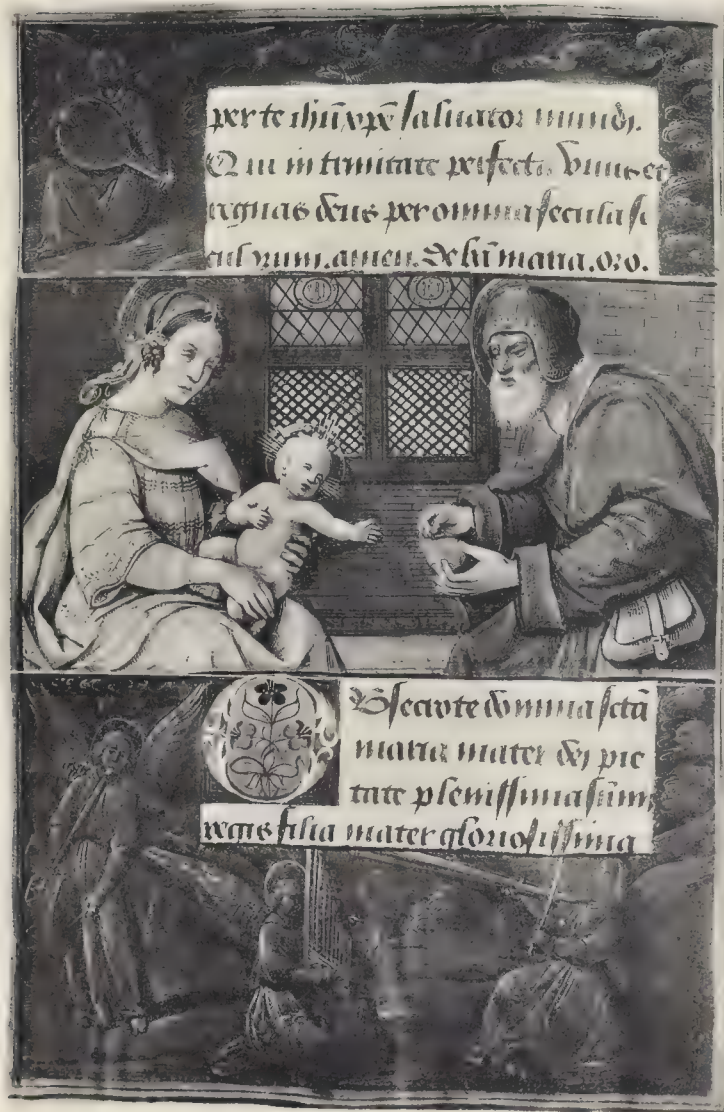 per te ihũ xpẽ saluator mundi.
Qui in trinitate perfecta viuis et
regnas deus per omnia secula se
culorum. amen. De btã maria. oro.
Obsecro te domina sctã
maria mater dei pie
tate plenissima sũmi
regis filia mater gloriosissima